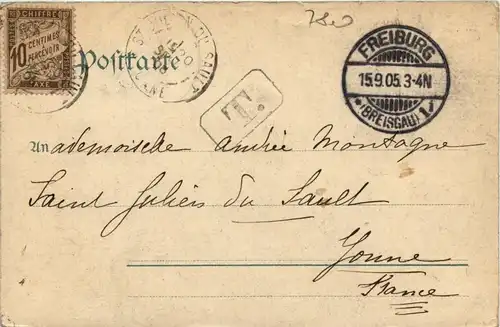 CHIFFRE
10 CENTIMES
A PERCEVOIR
TAXE
Postkarte
ST JULIEN DU SAULT
FREIBURG
15.9.05.3-4N
*(BREISGAU) 1.
An ademoiselle Andrée Montagne
Saint Julien du Sault
Yonne
France